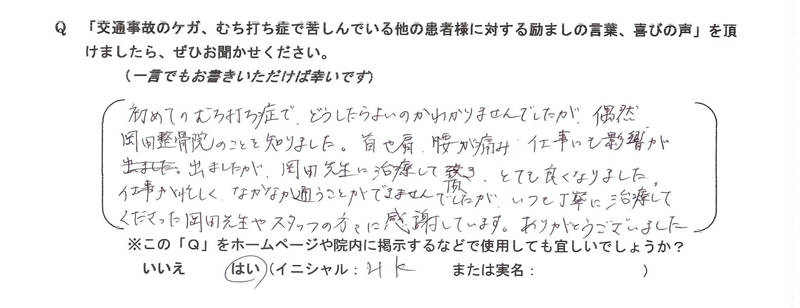 Q 「交通事故のケガ、むち打ち症で苦しんでいる他の患者様に対する励ましの言葉、喜びの声」を頂
けましたら、ぜひお聞かせください。
(一言でもお書きいただけば幸いです)
初めてのむち打ち症で、どうしたらよいのかわかりませんでしたが、偶然
岡田整骨院のことを知りました。首や肩、腰が痛み 仕事にも影響が
出ました。出ましたが、岡田先生に治療して頂き、とても良くなりました。
仕事が忙しく、なかなか通うことができませんでしたが、いつも丁寧に治療して
くださった岡田先生やスタッフの方々に感謝しています。ありがとうございました
※この「Q」をホームページや院内に掲示するなどで使用しても宜しいでしょうか?
いいえ はい(イニシャル: H K または実名: )